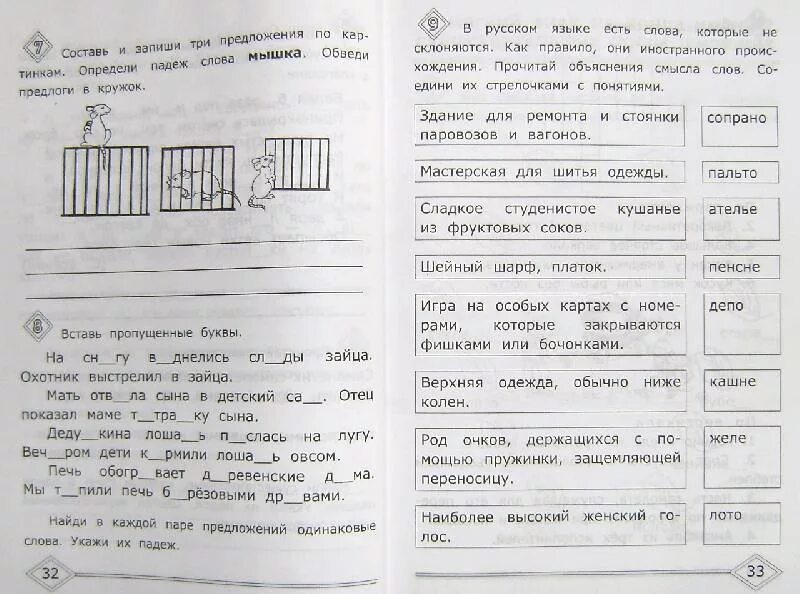 7 Составь и запиши три предложения по кар-
тинкам. Определи падеж слова мышка. Обведи
предлоги в кружок.
8 Вставь пропущенные буквы.
На сн__гу в__днелись сл__ды зайца.
Охотник выстрелил в зайца.
Мать отв__ла сына в детский са__. Отец
показал маме т__тра__ку сына.
Деду__кина лоша__ь п__слась на лугу.
Веч__ром дети к__рмили лоша__ь овсом.
Печь обогр__вает д__ревенские д__ма.
Мы т__пили печь б__рёзовыми др__вами.
Найди в каждой паре предложений одинаковые
слова. Укажи их падеж.
32
9 В русском языке есть слова, которые не
склоняются. Как правило, они иностранного проис-
хождения. Прочитай объяснения смысла слов. Со-
едини их стрелочками с понятиями.
Здание для ремонта и стоянки
паровозов и вагонов.
сопрано
Мастерская для шитья одежды.
пальто
Сладкое студенистое кушанье
из фруктовых соков.
ателье
Шейный шарф, платок.
пенсне
Игра на особых картах с номе-
рами, которые закрываются
фишками или бочонками.
депо
Верхняя одежда, обычно ниже
колен.
кашне
Род очков, держащихся с по-
мощью пружинки, защемляющей
переносицу.
желе
Наиболее высокий женский го-
лос.
лото
33